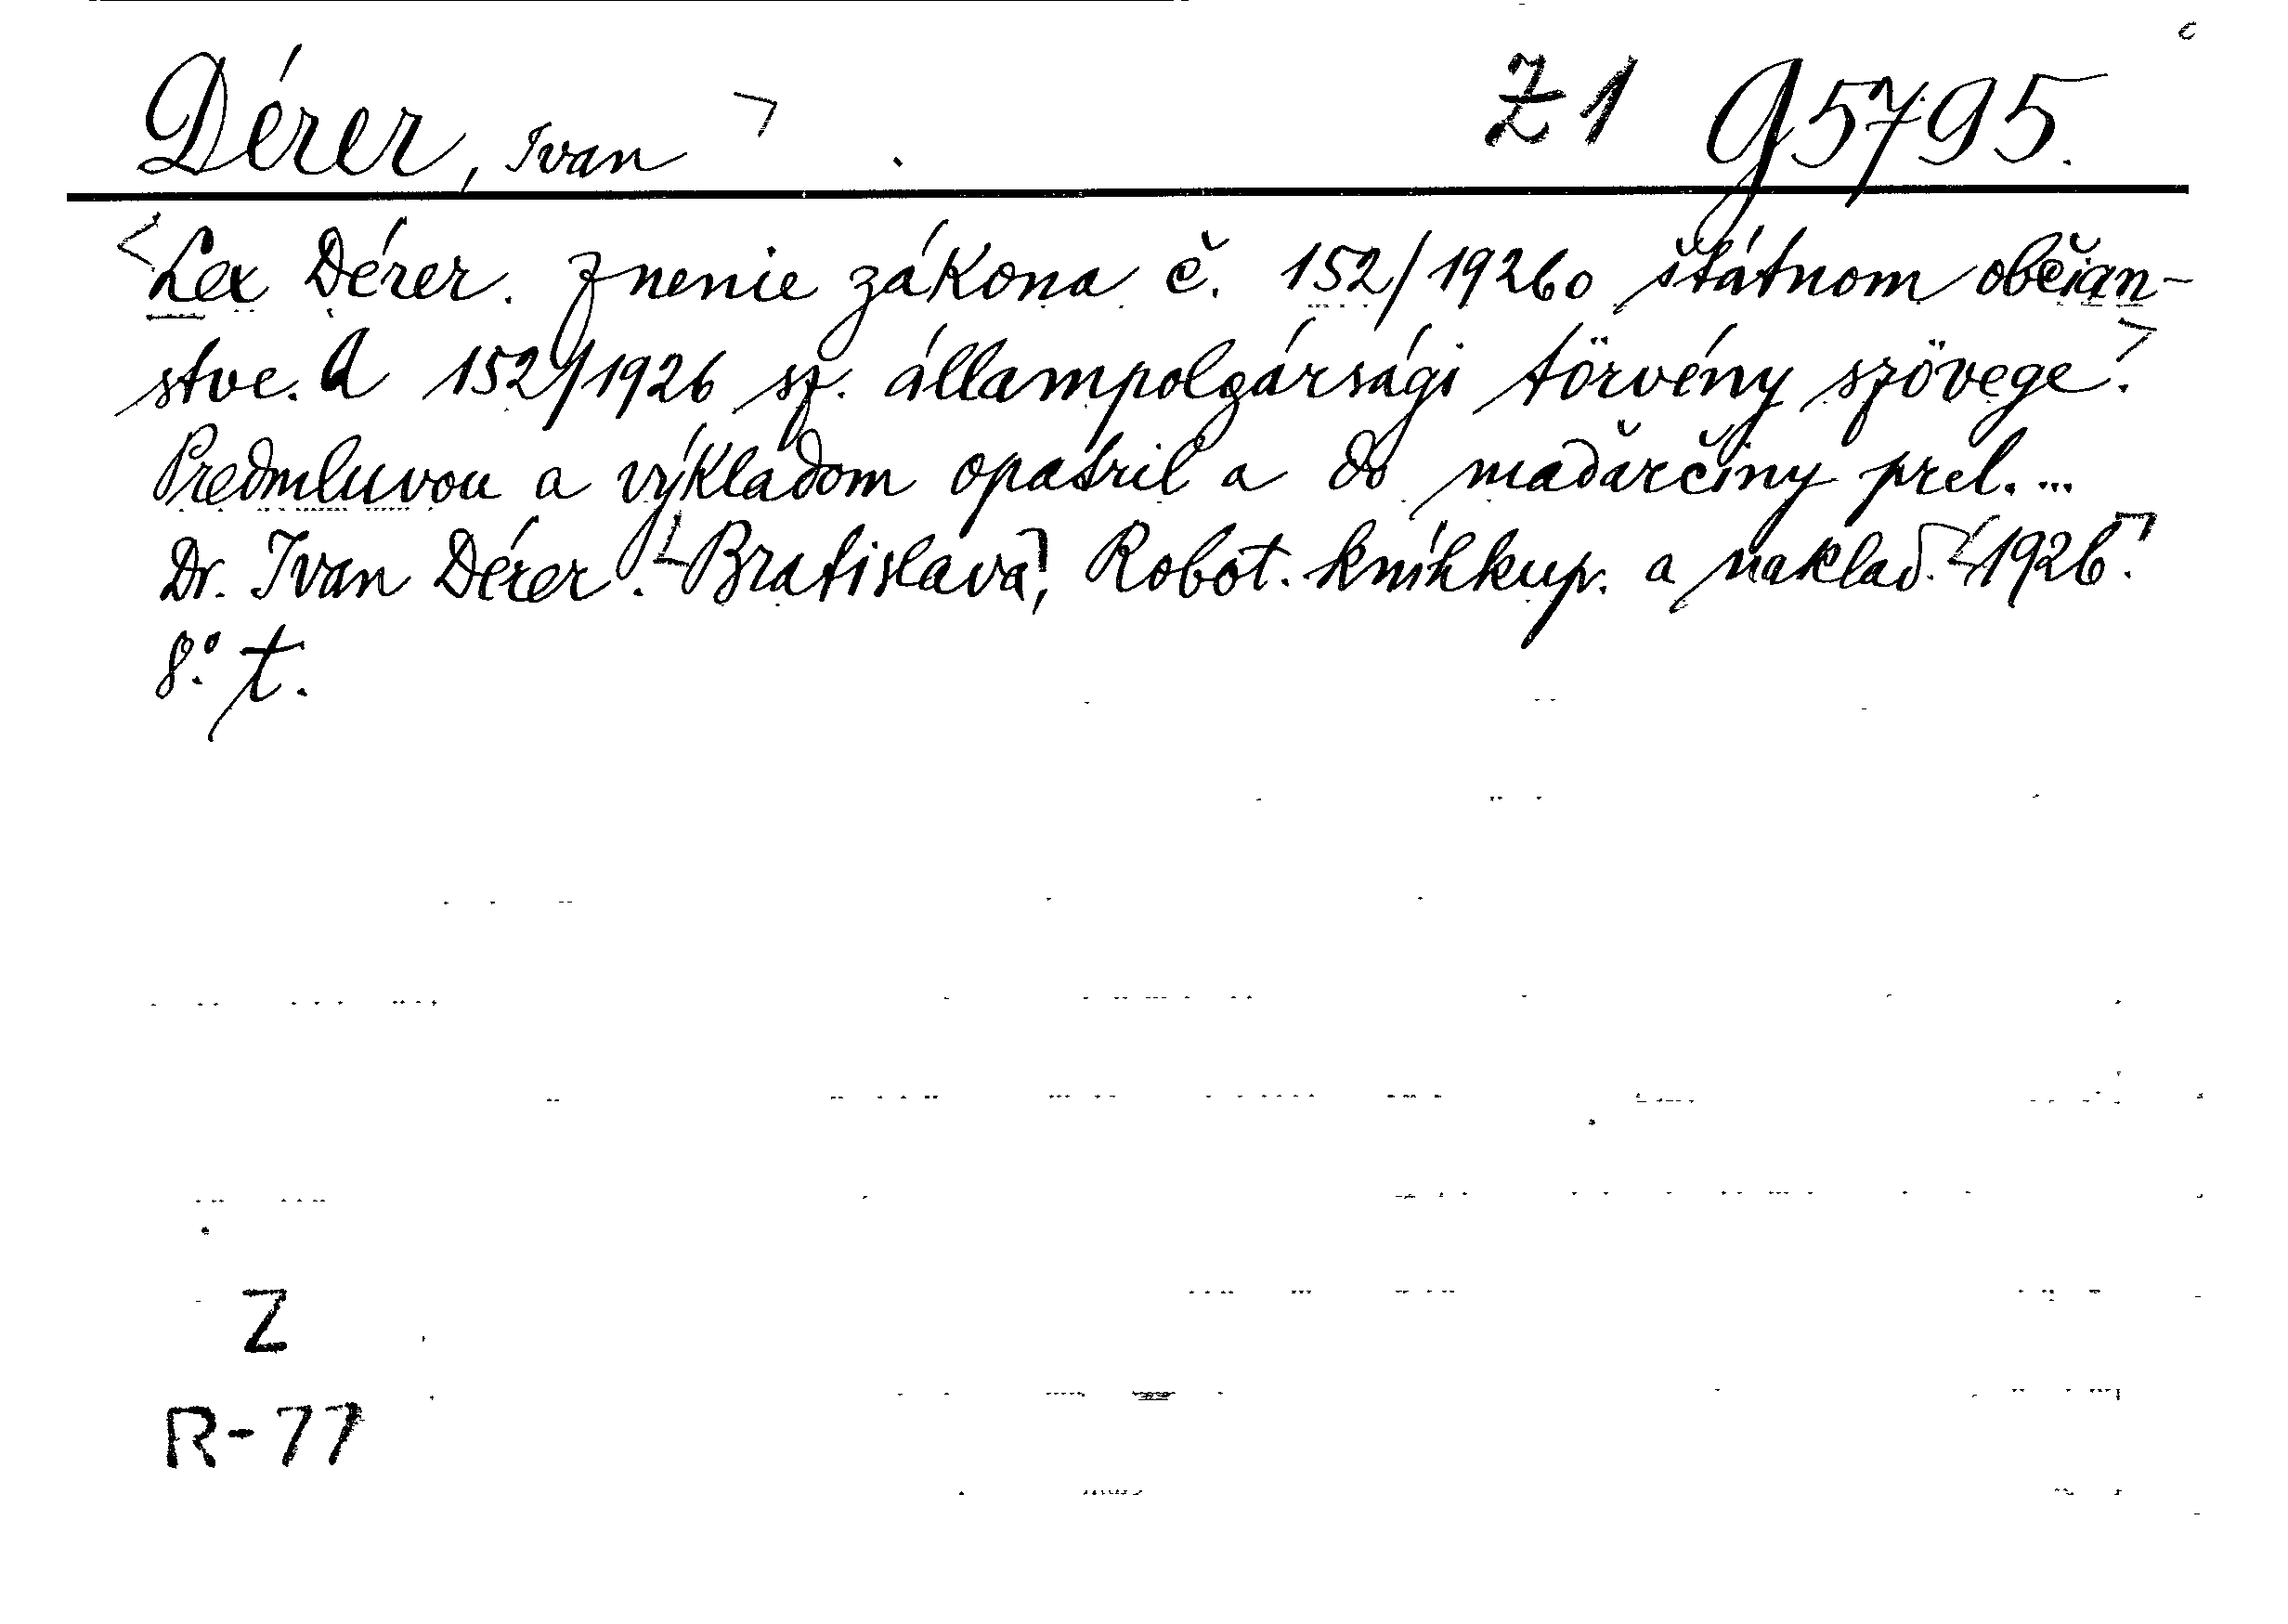 Dérer, Ivan Z1 G5795.
Lex Dérer. Znenie zákona č. 152/1926 o štátnom občian-
stve. A 152/1926 sz. állampolgársági törvény szövege.
Predmluvou a výkladom opatril a do maďarčiny prel. ...
Dr. Ivan Dérer. Bratislava, Robot. kníhkup. a naklad. 1926.
8.° t.
Z
R-77